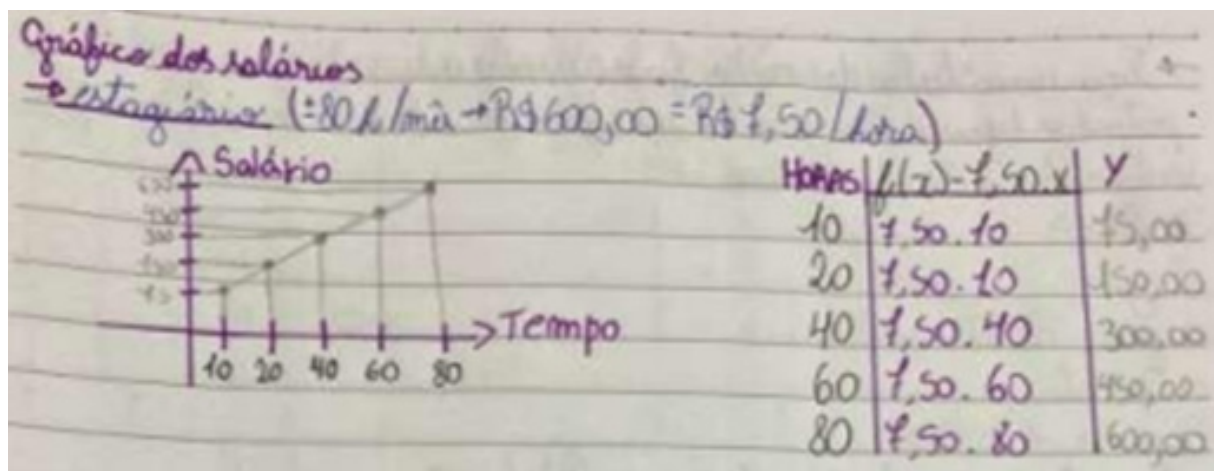 Gráfico dos salários
→ estagiário (±80 h/mês → R$600,00 = R$7,50/hora)
Salário
600
450
300
150
75
Tempo
10 20 40 60 80
HORAS f(x)-7,50.x Y
10 7,50.10 75,00
20 7,50.20 150,00
40 7,50.40 300,00
60 7,50.60 450,00
80 7,50.80 600,00